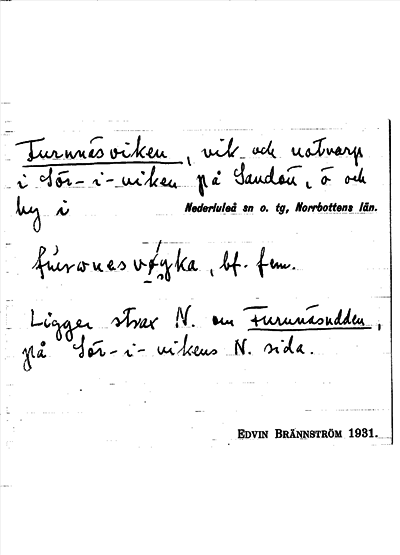 Furunäsviken, vik och notvarp
i Sör-i-viken på Sandön, ö och
by i Nederluleå sn o. tg, Norrbottens län.
fúrωnesvǿyka, bf. fem.
Ligger strax N. om Furunäsudden,
på Sör-i-vikens N. sida.
EDVIN BRÄNNSTRÖM 1931.